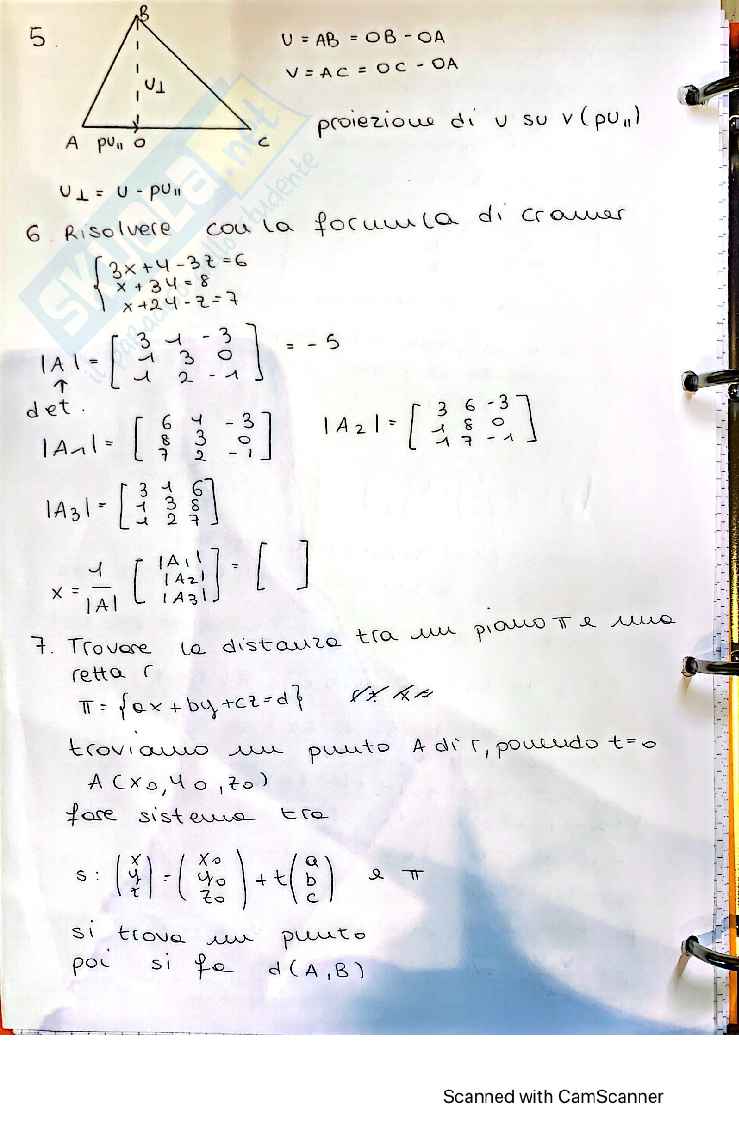 5.
B
U⊥
A PU₁₁ O C
U = AB = OB - OA
V = AC = OC - OA
proiezione di u su v (pu₁₁)
U⊥ = U - PU₁₁
6 Risolvere con la formula di cramer
{ 3x+y-3z=6
x+3y=8
x+2y-z=7
|A| = [ 3 1 -3
1 3 0
1 2 -1 ] = -5
↑
det.
|A1| = [ 6 1 -3
8 3 0
7 2 -1 ]
|A2| = [ 3 6 -3
1 8 0
1 7 -1 ]
|A3| = [ 3 1 6
1 3 8
1 2 7 ]
x = 1/|A| [ |A1|
|A2|
|A3| ] = [ ]
7. Trovare la distanza tra un piano π e una
retta r
π = {ax+by+cz=d}
troviamo un punto A di r, ponendo t=0
A (x0, y0, z0)
fare sistema tra
s: (x y z) = (x0 y0 z0) + t (a b c) e π
si trova un punto
poi si fa d(A,B)
SKUOLA.net
il paradiso dello studente
Scanned with CamScanner